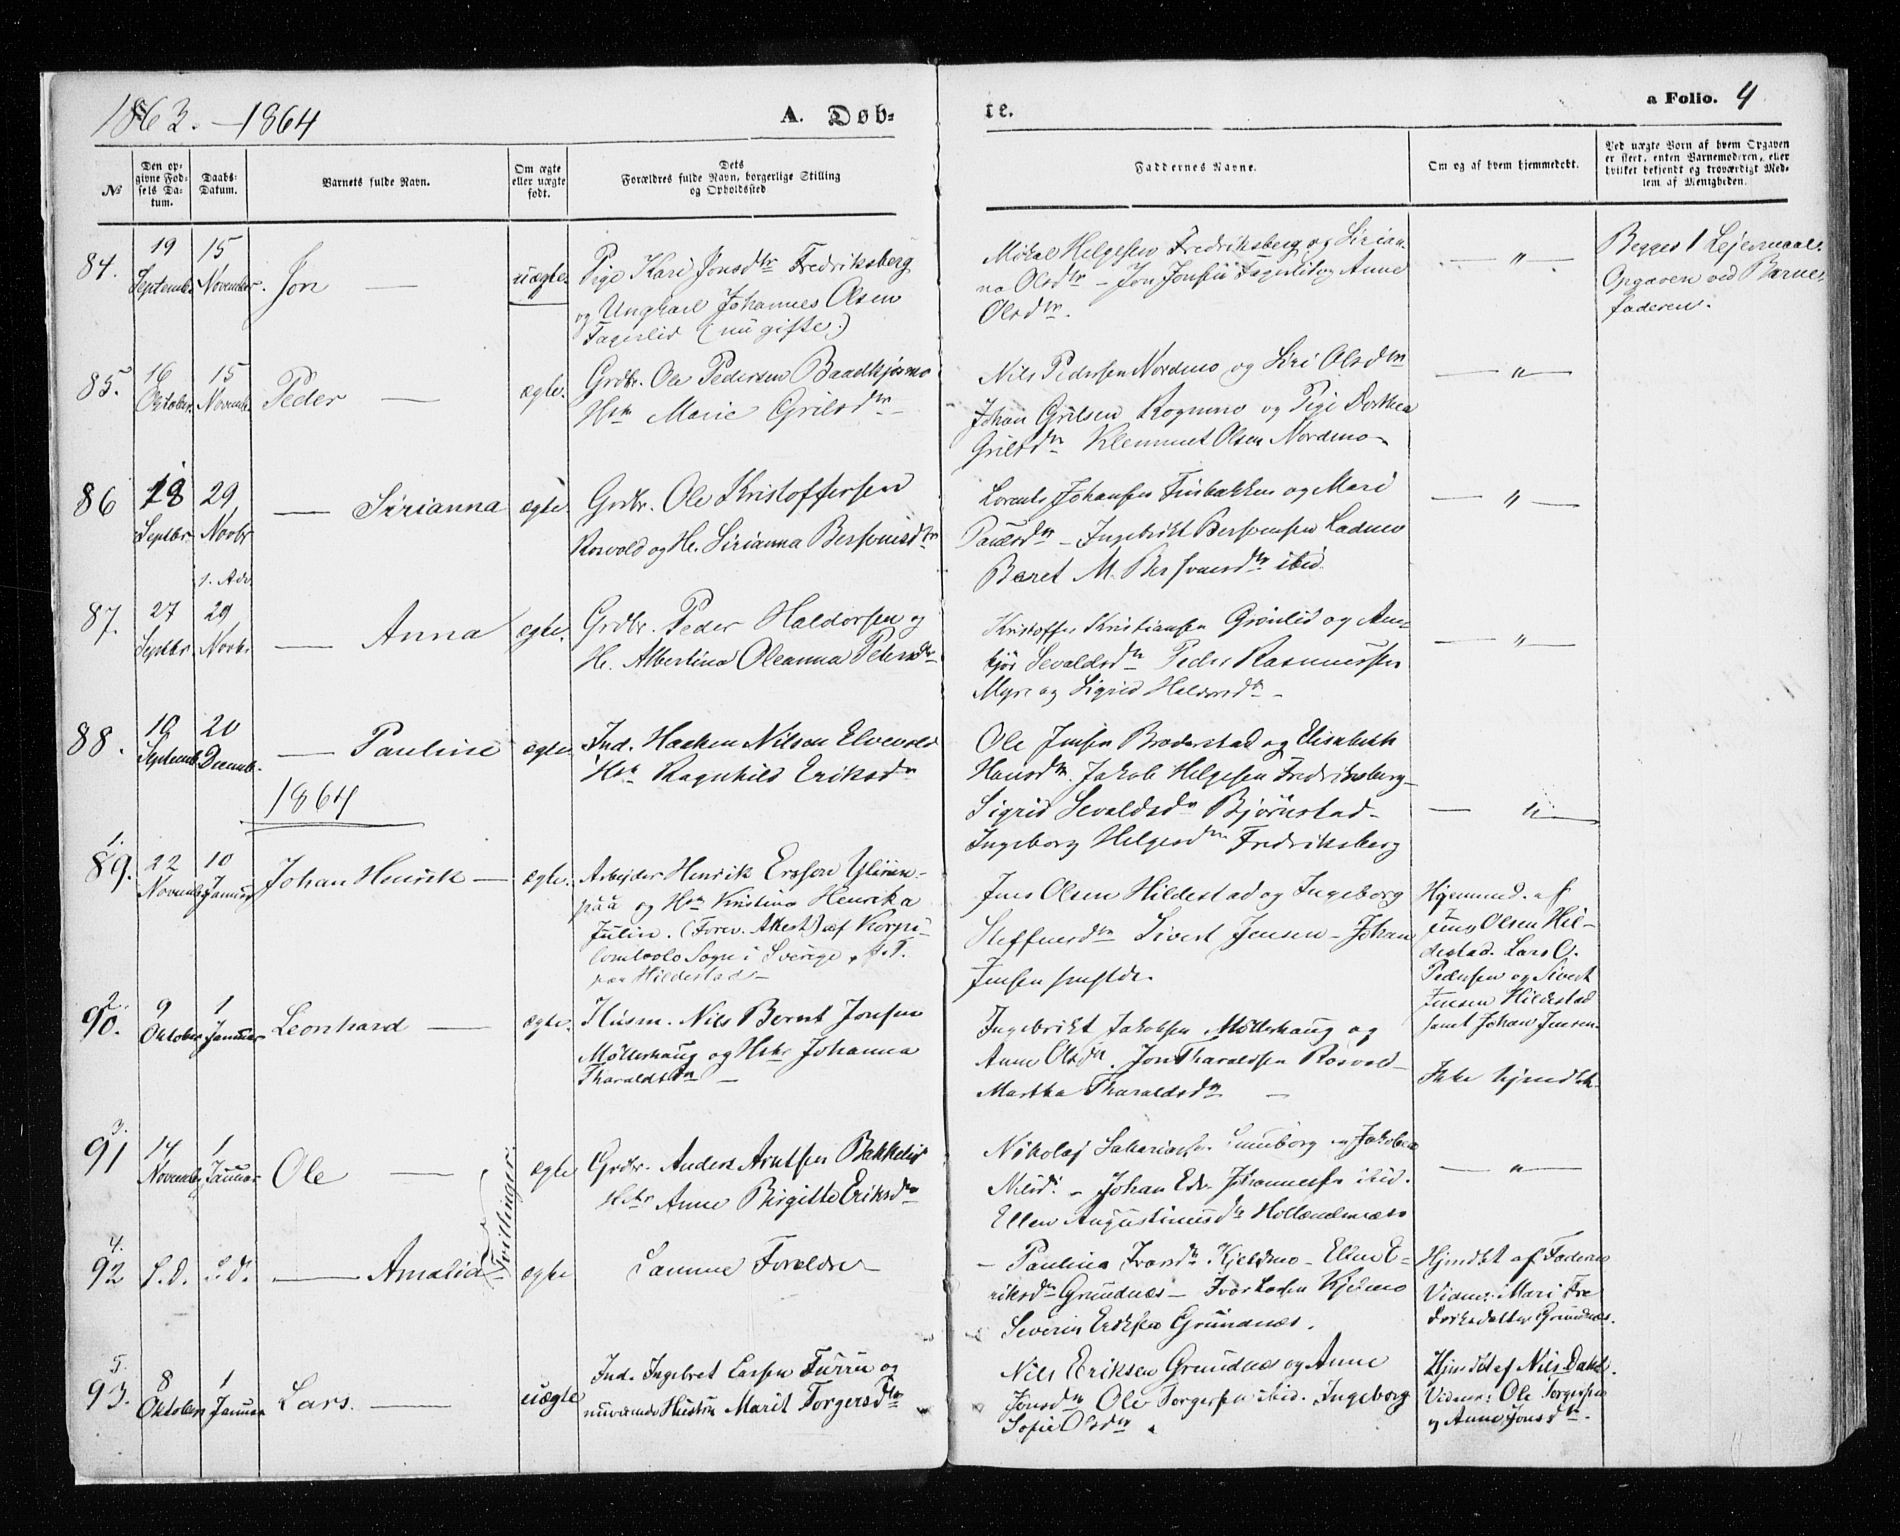 1863. — 1864
A. Døb-
te.
a Folio. 4
No
Den op-
givne Fød-
sels Da-
tum.
Daabs-
Datum.
Barnets fulde Navn.
Om ægte
eller uægte
født.
Dets
Forældres fulde Navn, borgerlige Stilling
og Opholdssted
Faddernes Navne.
Om og af hvem hjemmedøbt.
Ved uægte Børn af hvem Opgaven
er skeet, enten Barnemoderen, eller
hvilket bekjendt og troværdigt Med-
lem af Menigheden.
84.
19
Septemb.
15
November.
Jon —
uægte.
Pige Kari Jonsdtr Fredriksberg
og Ungkarl Johannes Olsen
Fagerlid (nu gifte.)
Mikal Helgesen Fredriksberg og Sirian-
na Olsdtr — Jon Jonsen Fagerlid og Anne
Olsdtr.
— " —
Begges 1 Lejermaal.
Opgaven ved Barne-
faderen.
85.
16
Oktober
15
Novemb.
Peder —
ægte.
Grdbr. Ole Pedersen Baadkjosmo
Hstr Marie Grilsdtr —
Nils Pedersen Nordmo og Siri Olsdtr
Johan Grilsen Rognmo og Pige Dorthea
Grilsdtr Klemmet Olsen Nordmo —
— " —
86
18
Septbr
29
Novbr
— Sirianna
ægte.
Grdbr. Ole Kristoffersen
Rosvold og H. Sirianna Bersvensdtr
Lorents Johansen Finbakken og Mari
Paulsdtr — Ingebrikt Bersvensen Ladmo
Beret M. Bersvensdtr ibid.
— " —
87.
27
Septbr
1. Adv
29
Novbr.
— Anna
ægte.
Grdbr. Peder Haldorsen og
H. Albertina Oleanna Petersdtr
Kristoffer Kristiansen Grönlid og Ann-
kjös Sevaldsdtr Peder Rasmussen
Myre og Sigrid Haldorsdtr —
— " —
88.
19
Septemb.
20
Decemb.
— Pauline
ægte.
Ind. Haaken Nilsen Elvevold
Hstr Ragnhild Eriksdtr
Ole Jensen Broderstad og Elisabeth
Hansdtr. Jakob Helgesen Fredriksberg —
Sigrid Sevaldsdtr Bjørnstad —
Ingeborg Helgesdtr Fredriksberg
— " —
1864
1.
89.
22
Novemb.
10
Januar
Johan Henrik —
ægte.
Arbejder Henrik Ersson Ylinen-
pää og Hstr Kristina Henrika
Julin. (Forev. Attest) af Korpi-
lombolo Sogn i Sverige, p. T.
paa Hildestad —
Jens Olsen Hildestad og Ingeborg
Steffensdtr Sivert Jensen — Johan
Jensen smstds.
Hjemmed. af
Jens Olsen Hil-
destad. Lars O.
Pedersen og Sivert
Jensen Hildestad
samt Johan Jensen
2.
90.
9
Oktober
1
Januar
Leonhard —
ægte.
Husm. Nils Bernt Jonsen
Möllerhaug og Hstr Johanna
Tharaldsdtr —
Ingebrikt Jakobsen Möllerhaug og
Anne Olsdtr. Jon Tharaldsen Rosvold —
Martha Tharaldsdtr —
Ikke hjmdbt.
3.
91
14
Novemb.
1
Januar
Ole —
Tvillinger.
ægte
Grdbr. Anders Arntsen Bakkelid
Hstr Anne Birgitte Eriksdtr
Nikolaj Sakariasen og Jakobea
Nilsd. — Johan Edv. Johannessen ibid.
Ellen Augustinusdtr Hollændernæs
— " —
4.
92
S. D.
S. D.
— Amalia
ægte
Samme Forældre —
— Paulina Ivarsdtr Kjeldmo — Ellen E-
riksdtr Grundnæs — Ivar Larsen Kjelmo
Severin Eriksen Grundnæs.
Hjmdbt af Faderen
Vidner: Mari Fre-
driksdatter Grundnæs.
5.
93.
8
Oktober
1
Januar
Lars. —
uægte
Ind. Ingebret Larsen Furru og
nuværende Hustru Marit Torgersdtr
Nils Eriksen Grundnæs og Anne
Jonsdtr Ole Torgersen ibid. Ingeborg
Sofie Olsdtr.
Hjmdbt af Nils Dahl.
Vidner: Ole Torgersen
og Anne Jonsdtr.